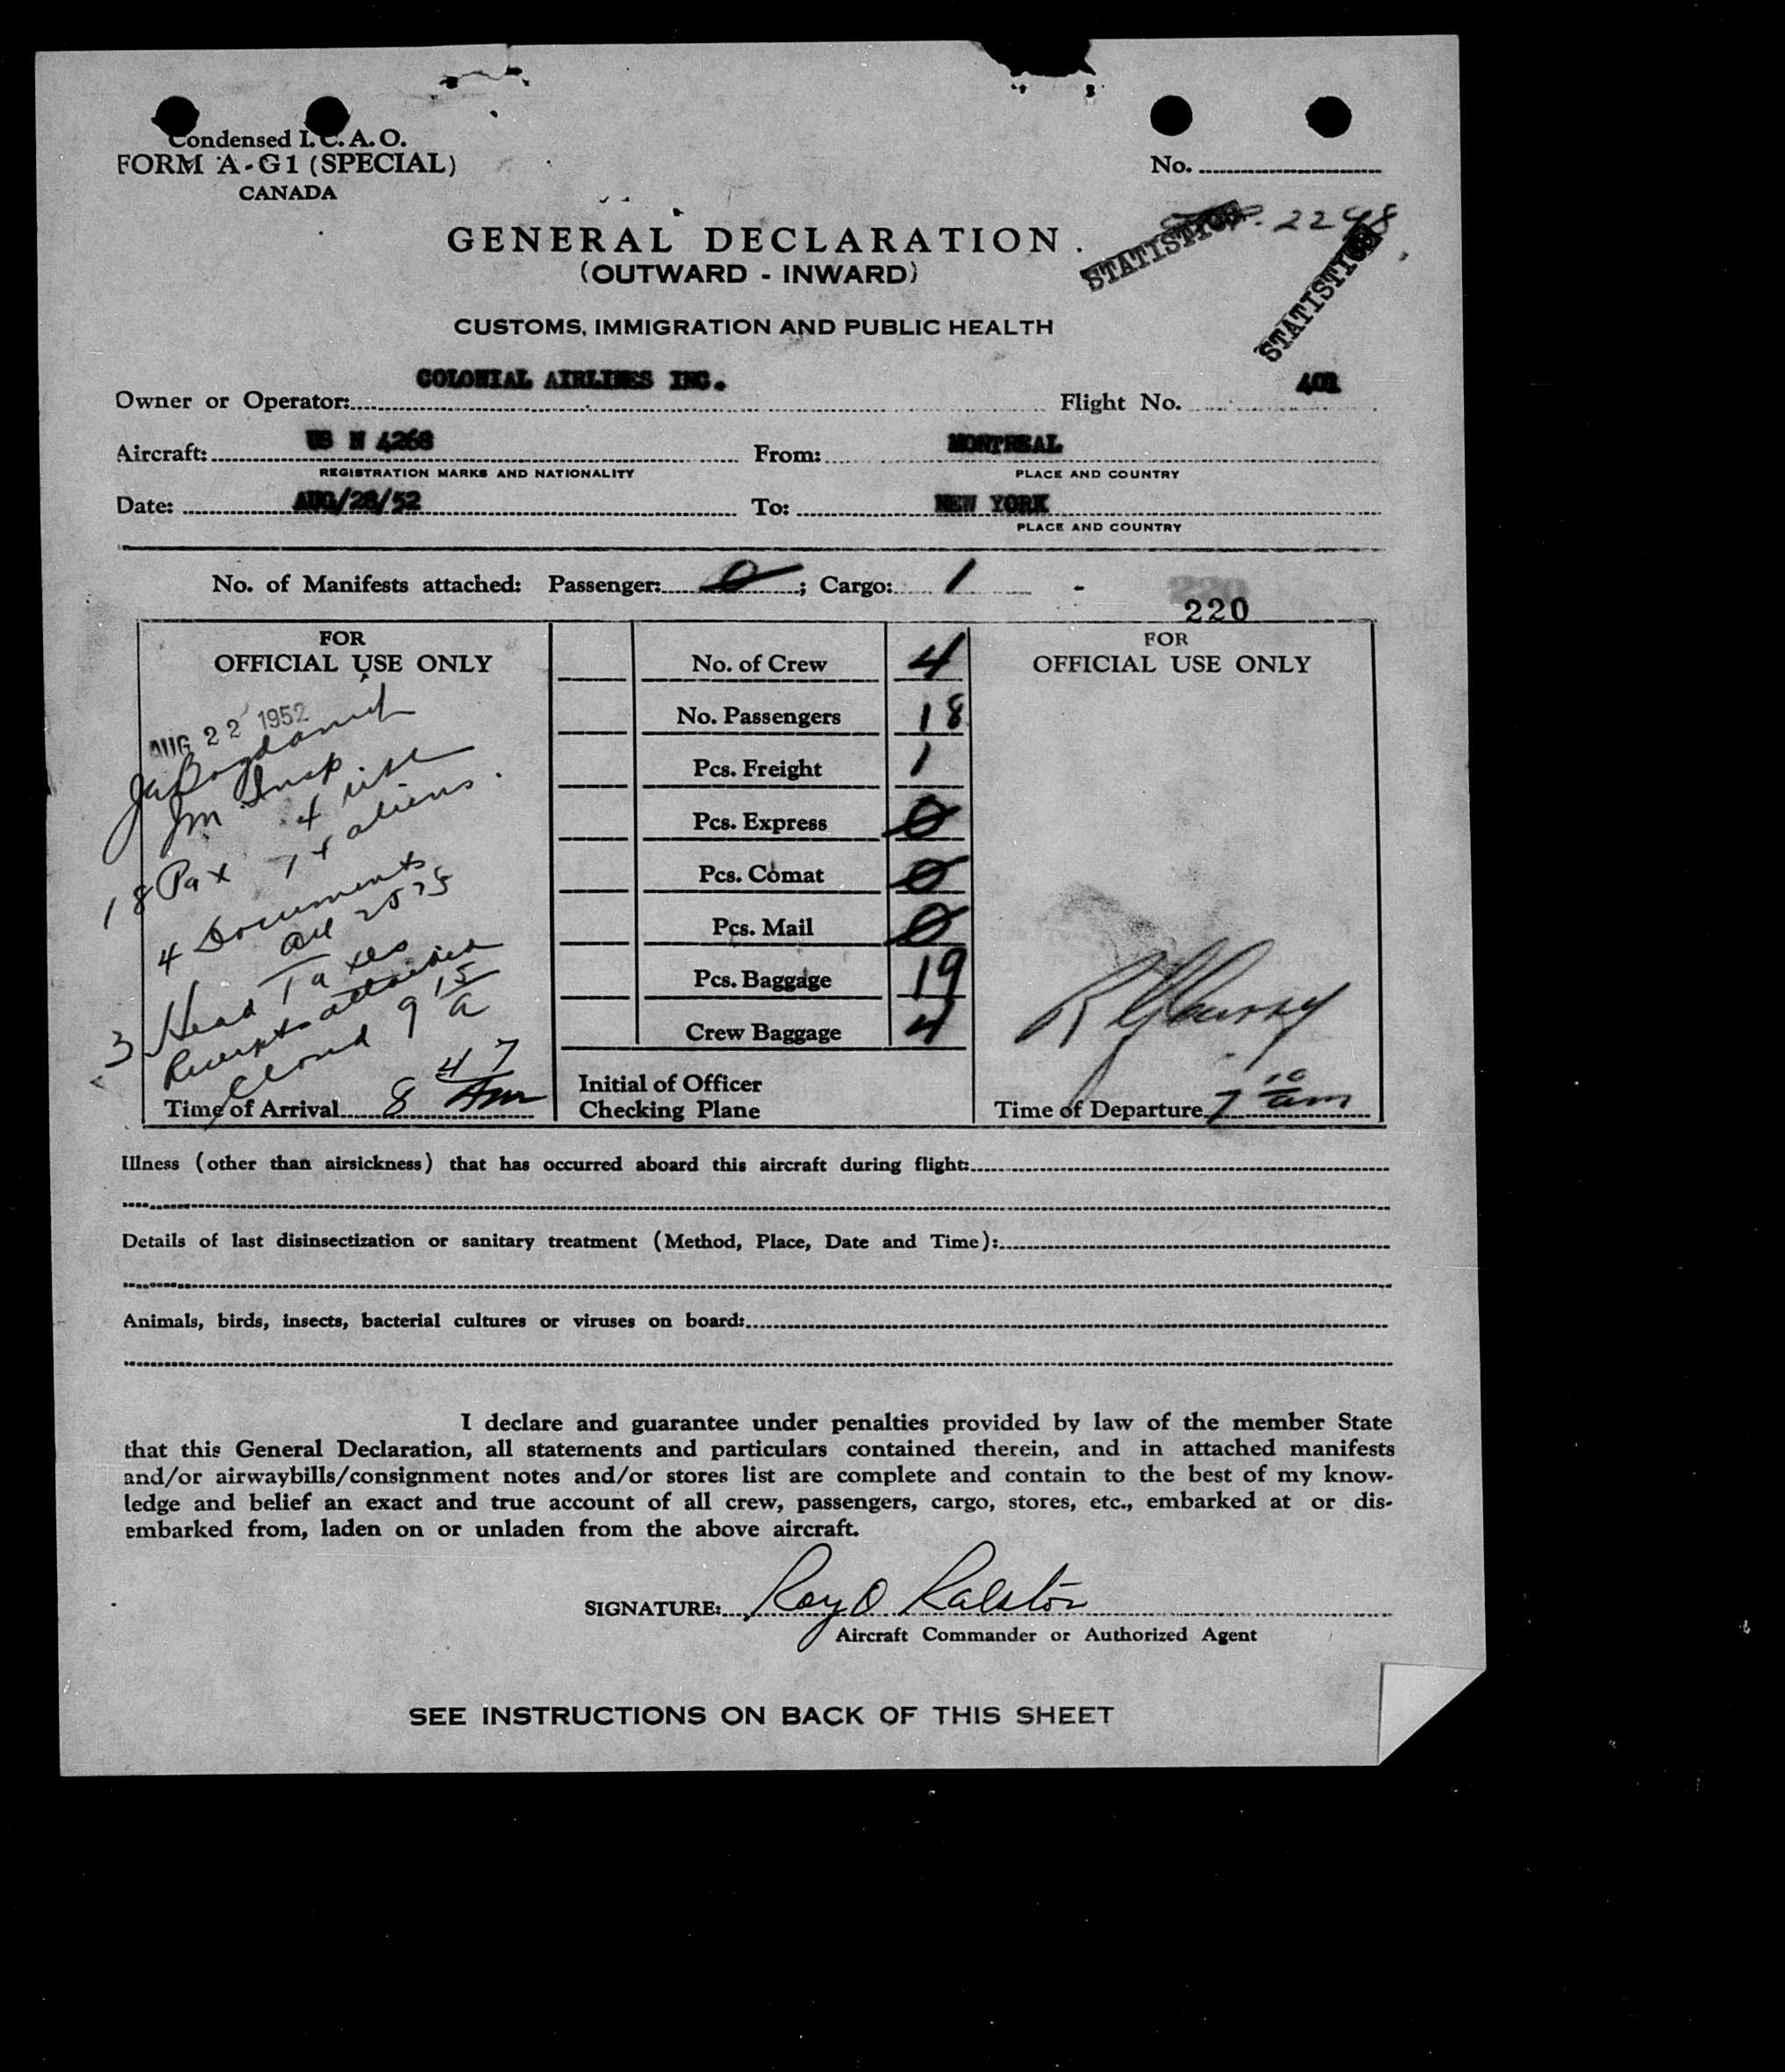 Condensed I.C.A.O.
FORM A-G1 (SPECIAL)
CANADA
No.
GENERAL DECLARATION
(OUTWARD - INWARD)
2248
STATISTICS
STATISTICS
CUSTOMS, IMMIGRATION AND PUBLIC HEALTH
Owner or Operator: COLONIAL AIRLINES INC. Flight No.
Aircraft: US N 4268 From: MONTREAL
REGISTRATION MARKS AND NATIONALITY PLACE AND COUNTRY
Date: AUG/28/52 To: NEW YORK
PLACE AND COUNTRY
No. of Manifests attached: Passenger: 0; Cargo: 1 -
220
220
FOR
OFFICIAL USE ONLY
AUG 22 1952
Im Insp.
18 Pax 7 + aliens.
4 Documents
all
3 Head Taxes
Receipts attached
Closed 9 15 a
Time of Arrival 8 47 Am
No. of Crew 4
No. Passengers 18
Pcs. Freight 1
Pcs. Express 0
Pcs. Comat 0
Pcs. Mail 0
Pcs. Baggage 19
Crew Baggage 4
Initial of Officer
Checking Plane
FOR
OFFICIAL USE ONLY
Time of Departure 7 10 am
Illness (other than airsickness) that has occurred aboard this aircraft during flight:
Details of last disinsectization or sanitary treatment (Method, Place, Date and Time):
Animals, birds, insects, bacterial cultures or viruses on board:
I declare and guarantee under penalties provided by law of the member State
that this General Declaration, all statements and particulars contained therein, and in attached manifests
and/or airwaybills/consignment notes and/or stores list are complete and contain to the best of my know-
ledge and belief an exact and true account of all crew, passengers, cargo, stores, etc., embarked at or dis-
embarked from, laden on or unladen from the above aircraft.
SIGNATURE: Roy O Ralston
Aircraft Commander or Authorized Agent
SEE INSTRUCTIONS ON BACK OF THIS SHEET